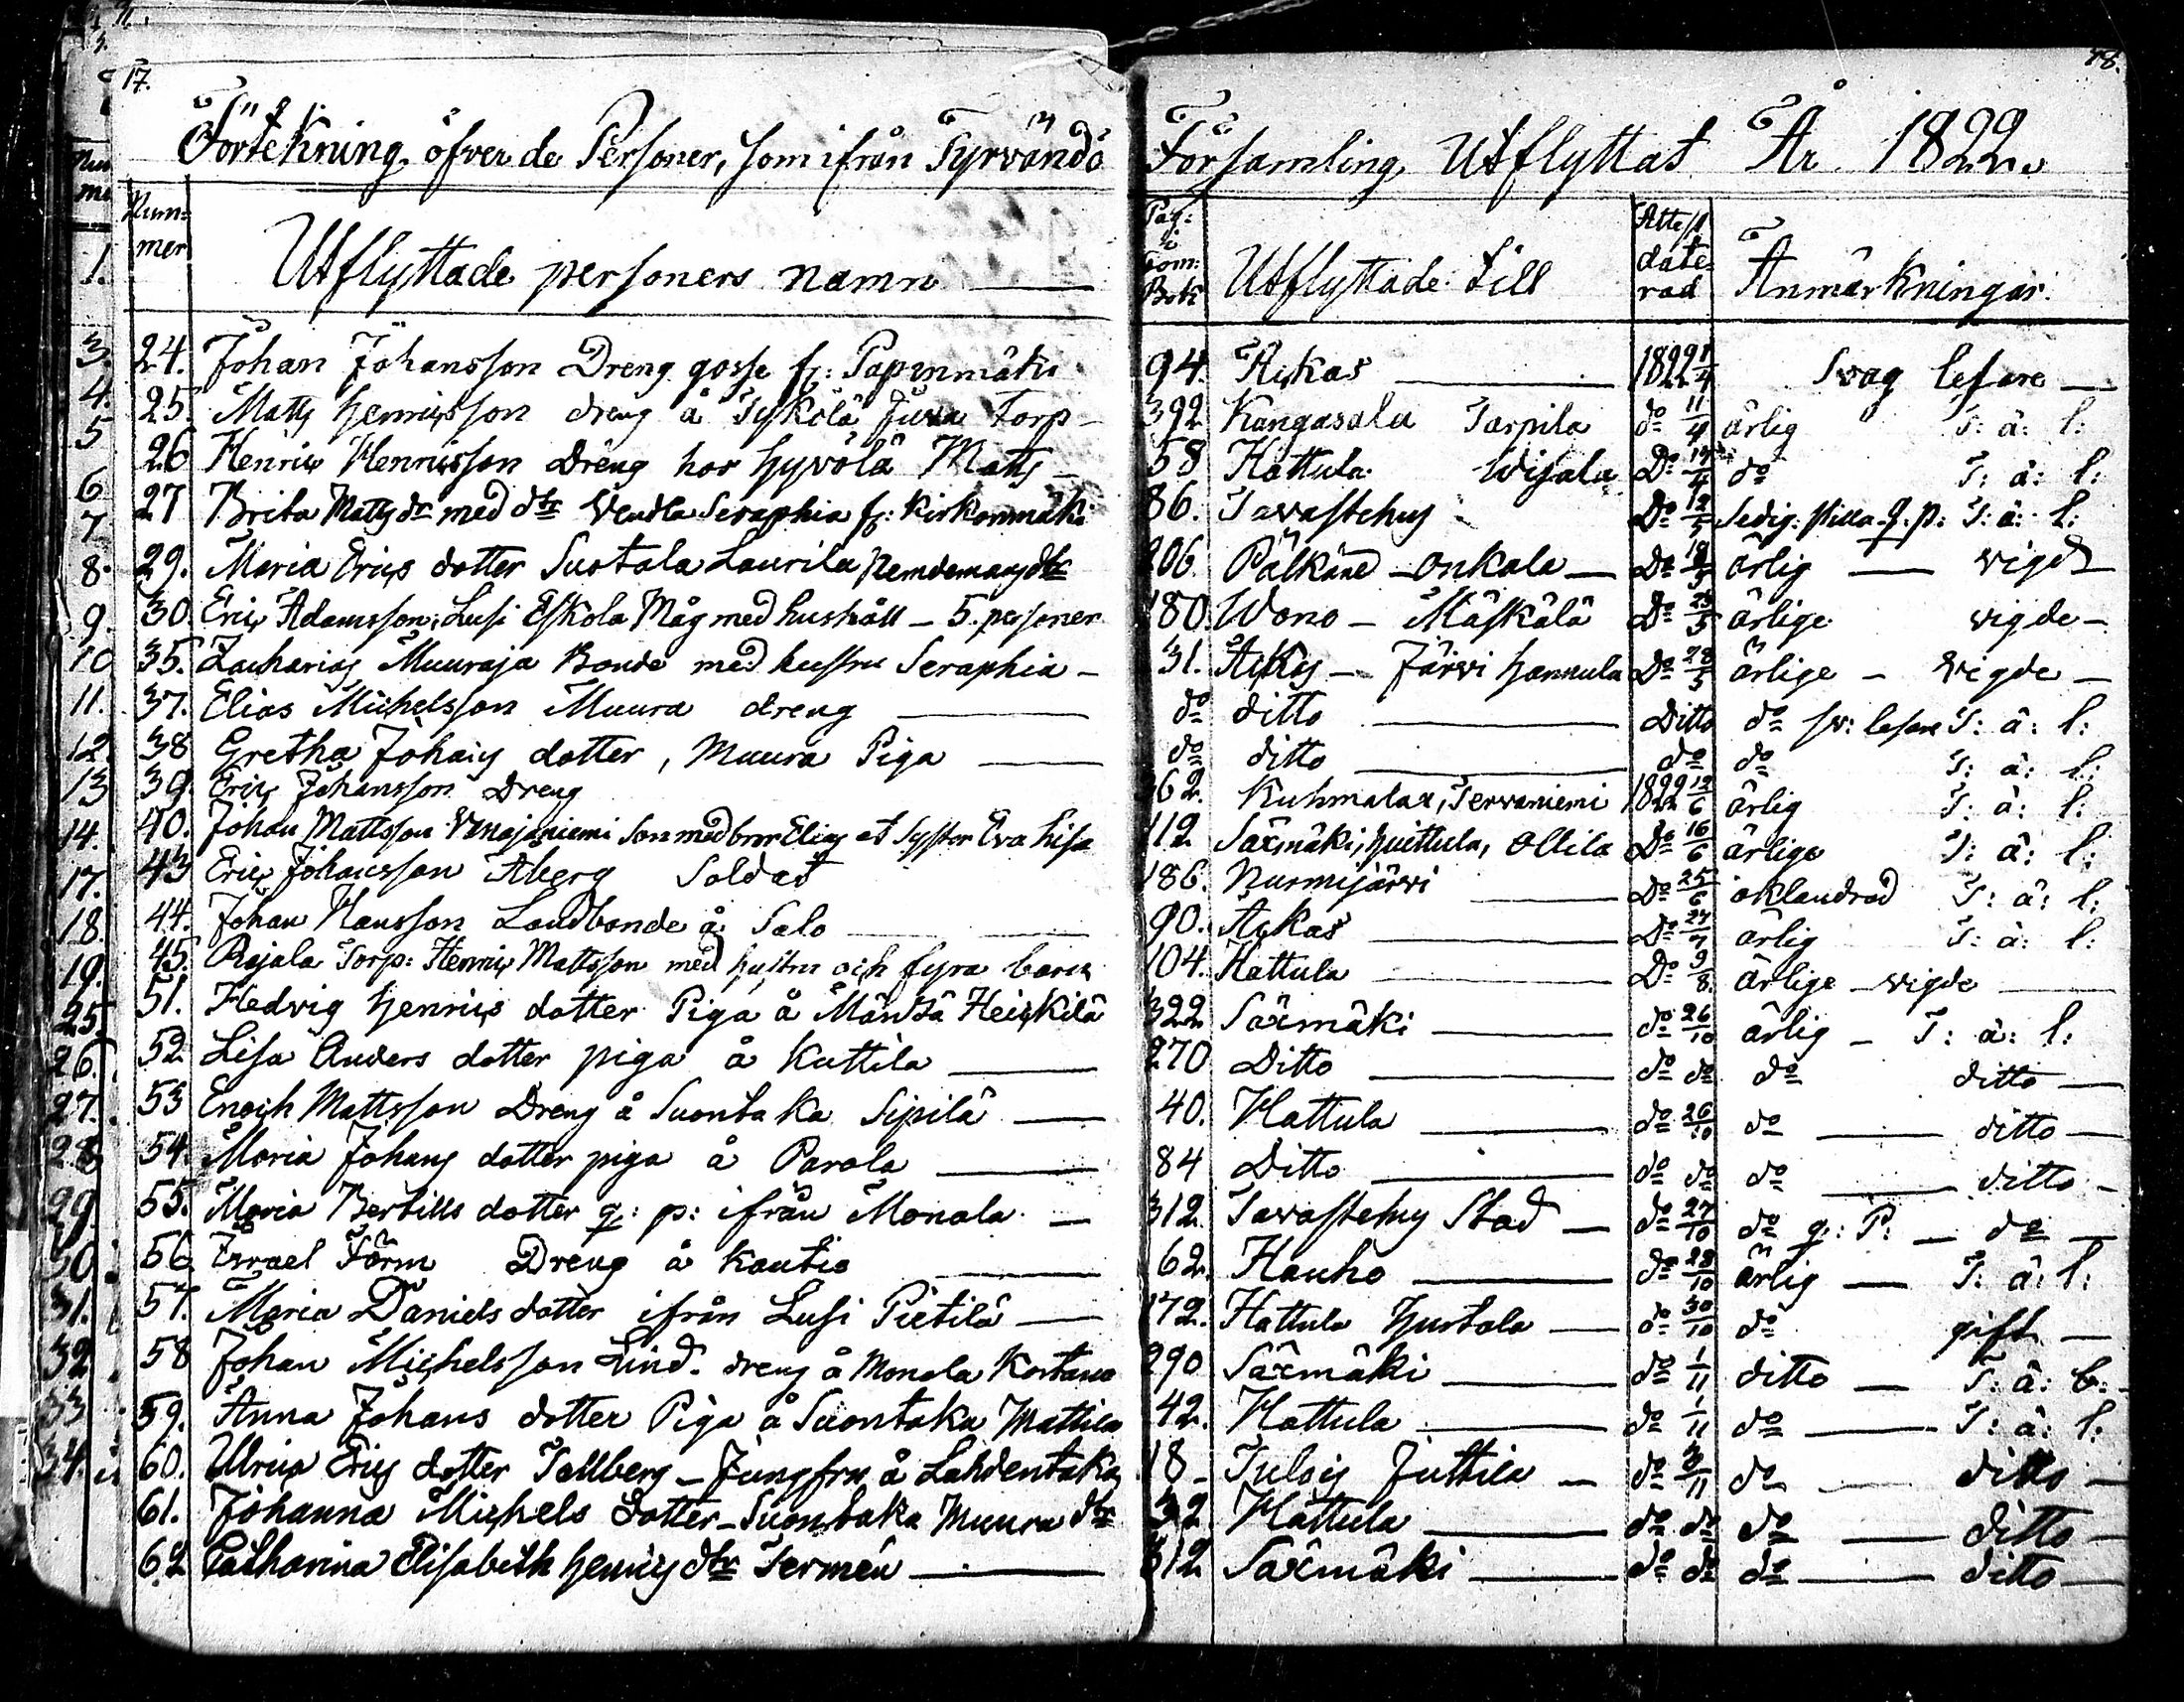 17.
18.
Förtekning öfver de Personer, som ifrån Tyrvändö Församling Utflyttat År 1822.
Num= mer
Utflyttade personers namn
Pag: i Com: Bok
Utflyttade till
Attest date= rad
Anmärkningar.
24. Johan Johansson Dreng gosse fr: Papinmäki 94. Ackas 1822 Svag lesare
25. Matts Henricsson dreng å Sykölä Juva Torp 392 Kangasala Tarpila do 11/4 ärlig T: ä: l:
26 Henric Henricsson Dreng hos Hyvölä Matts 58 Hattula Do 14/4 do T: ä: l:
27 Brita Matts dr med dtr Vendla Seraphia fr: Kirkonmäki 86. Tavastehus Do 12/5 Sedig: q. p: T: ä: l:
29. Maria Erics dotter Suotala Laurila Nemdemans dtr 206 Pälkäne Onkala Do 18/5 ärlig vigd
30. Eric Adamsson, Lusi Eskola Måg med hushåll 5. personer 180. Wono Mäskälä Do 25/5 ärlige vigde
35. Zacharias Muuraja Bonde med hustru Seraphia 31. Ackas Järvi Hannula Do 28/5 ärlige vigde
37. Elias Michelsson Muura dreng do ditto Ditto do sv: lesare T: ä: l:
38 Gretha Johans dotter, Muura Piga do ditto do do T: ä: l:
39 Eric Johansson Dreng 362. Kuhmalax, Tervaniemi 1822 12/6 ärlig T: ä: l:
40. Johan Mattsson Venajaniemi Son med bror Elias et Syster Eva Lisa 112 Säxmäki, Huittula, Ollila Do 16/6 ärlige T: ä: l:
43 Eric Johansson Åberg Soldat 186. Nurmijärvi Do 25/6 oklandrad T: ä: l:
44. Johan Hansson Landbonde å Salo 90. Ackas Do 27/7 ärlig T: ä: l:
45. Rajala Torp: Henric Mattsson med hustru och fyra barn 104. Hattula Do 9/8. ärlige vigde
51. Hedvig Henrics dotter Piga å Mändä Heickilä 322 Säxmäki do 26/10 ärlig T: ä: l:
52 Lisa Anders dotter piga å Kuttila 270 Ditto do do do ditto
53 Enoch Mattsson Dreng å Suontaka Sipilä 40. Hattula do 26/10 do ditto
54. Maria Johans dotter piga å Parola 84 Ditto do do do ditto
55. Maria Bertills dotter q: p: ifrån Monala 312. Tavastehus Stad do 27/10 do q: P: do
56 Israel Form Dreng å Kautio 62. Hauho do 28/10 ärlig T: ä: l:
57. Maria Daniels dotter ifrån Lusi Pietilä 172. Hattula Hurtala do 30/10 do gift
58 Johan Michelsson Lind. dreng å Monala Kortano 290 Säxmäki do 1/11 ditto T: ä: l:
59. Anna Johans dotter Piga å Suontaka Mattila 42. Hattula do 1/11 do T: ä: l:
60. Ulrica Erics dotter Tallberg Jungfru å Lahdentaka 18 Tulois Juttila do 3/11 do ditto
61. Johanna Michels Dotter Suontaka Muura dtr 32 Hattula do do do ditto
62 Catharina Elisabeth Henrics dtr Sermén 312 Säxmäki do do do ditto